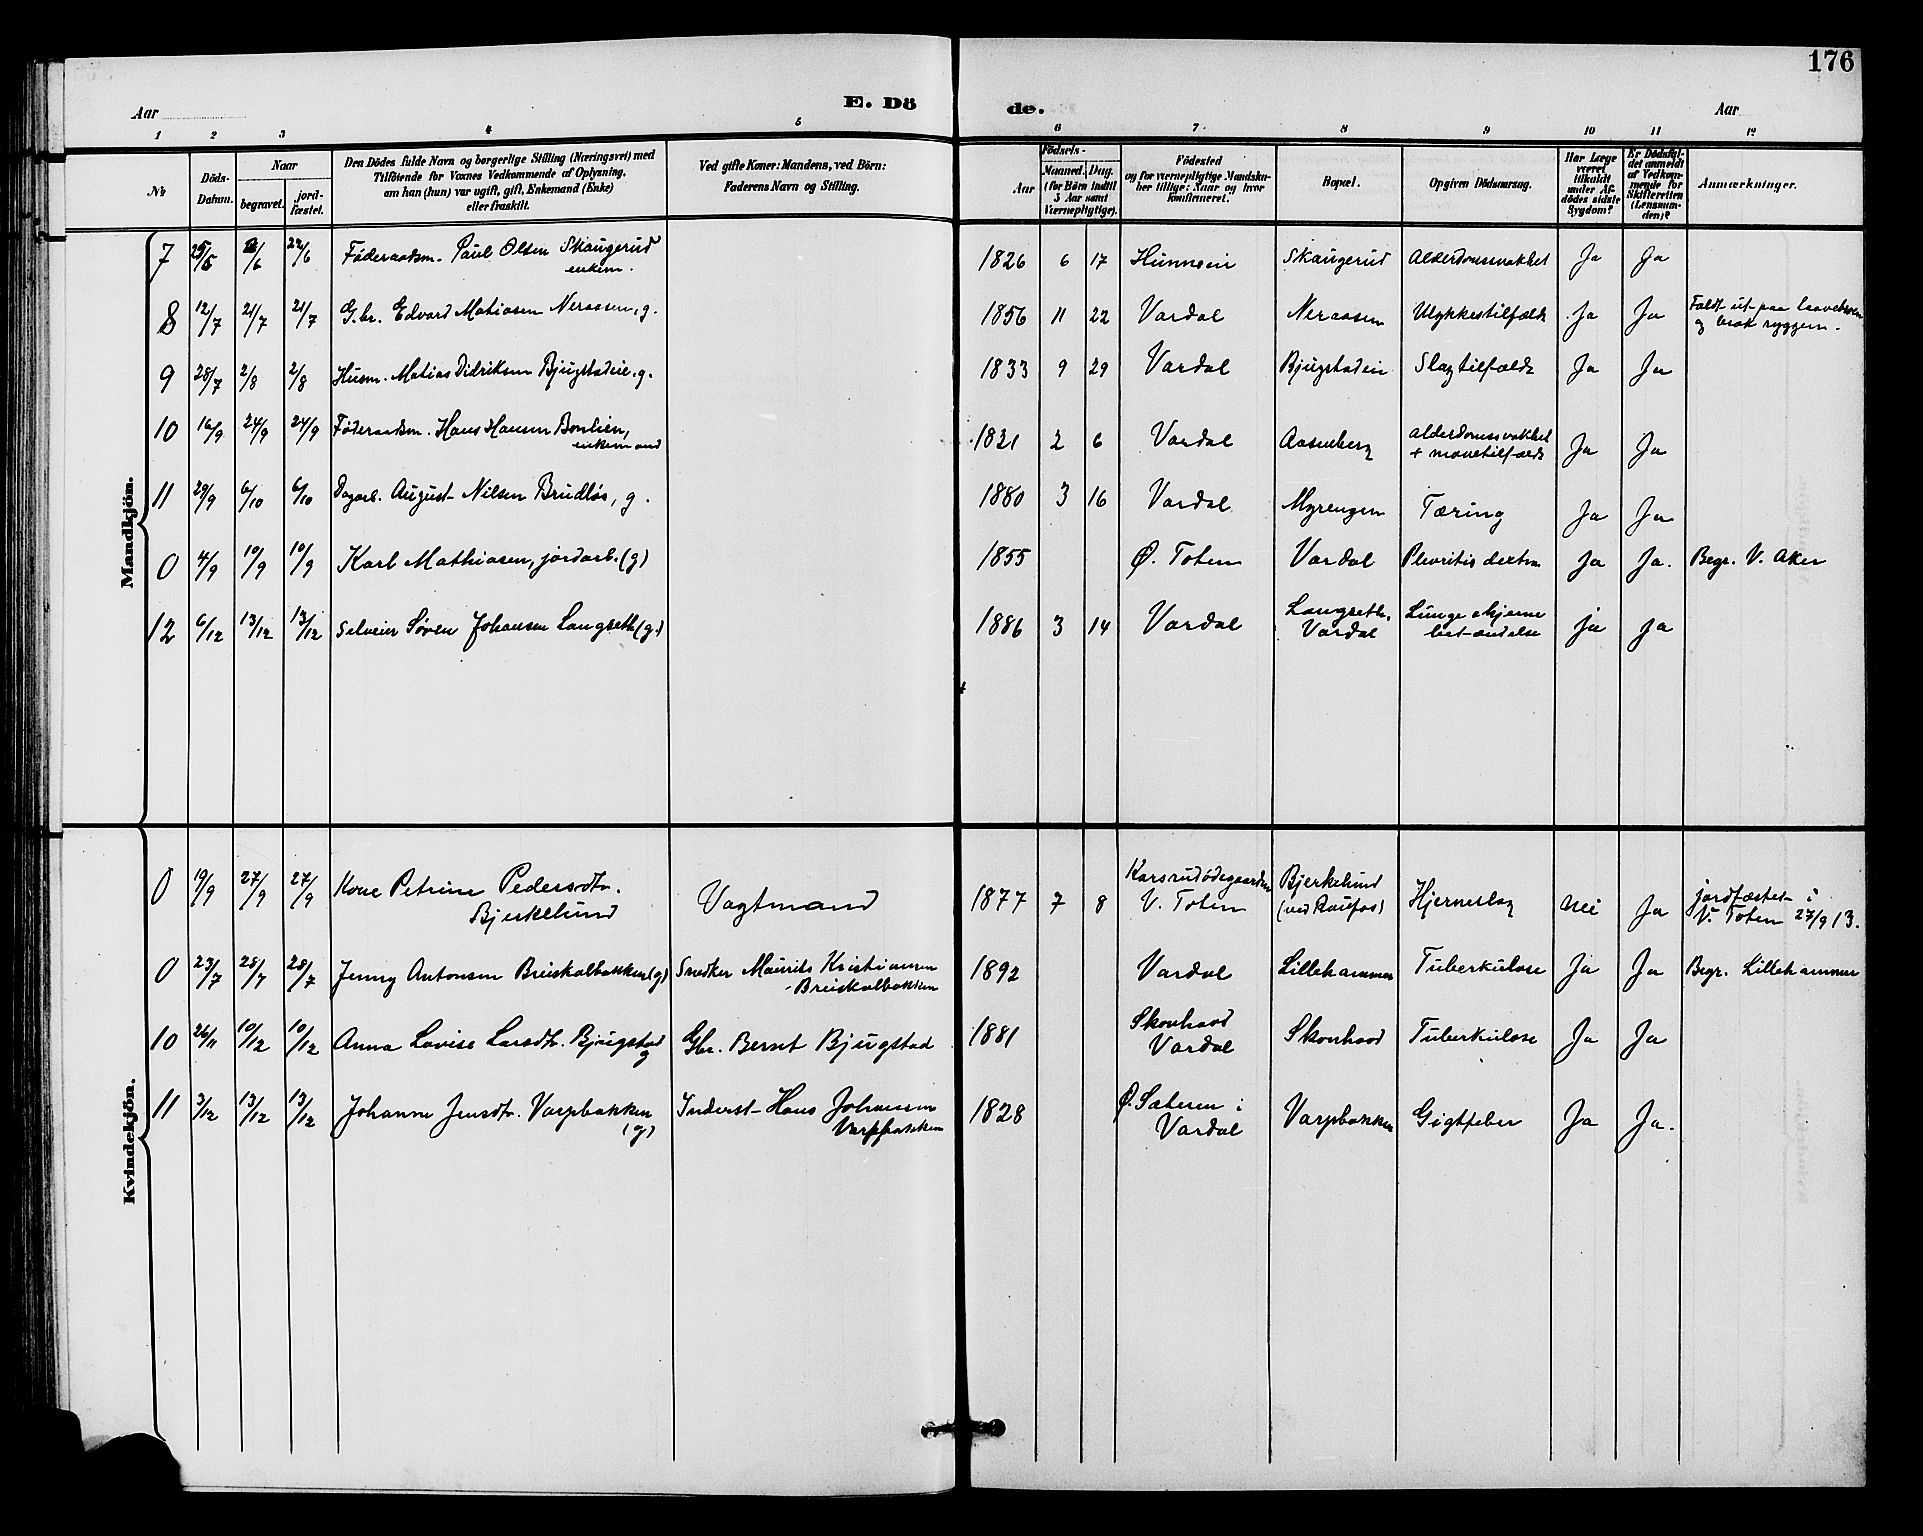 176
Aar
E. Dö
de.
Aar
1 2 3 4 5 6 7. 8 9 10 11 12
No
Döds-
Datum.
Naar
begravet.
jord-
fæstet.
Den Dödes fulde Navn og borgerlige Stilling (Næringsvei) med
Tilföiende for Voxnes Vedkommende af Oplysning,
om han (hun) var ugift, gift, Enkemand (Enke)
eller fraskilt.
Ved gifte Koner: Mandens, ved Börn:
Faderens Navn og Stilling.
Födsels-
Aar
Maaned.
Dag.
(for Börn indtil
5 Aar samt
Værnepligtige).
Födested
og for værnepligtige Mandska-
ber tillige: Naar og hvor
konfirmeret.
Bopæl.
Opgiven Dödsaarsag.
Har Læge
været
tilkaldt
under Af-
dödes sidste
Sygdom?
Er Dödsfal-
det anmeldt
af Vedkom-
mende for
Skifteretten
(Lensman-
den)?
Anmærkninger.
Mandkjön.
7 6/6 22/6 Föderaadsm. Paul Olsen Skaugerud
enkem.
1826 6 17 Hunnsein Skaugerud Alderdomssvakhet Ja Ja
8 12/7 21/7 21/7 G.br. Edvard Matiasen Neraasen, g.
1856 11 22 Vardal Neraasen Ulykkestilfælde Ja Ja Faldt ut paa laavebroen
og brak ryggen.
9 28/7 2/8 2/8 Husm. Matias Didriksen Bjugstadeie, g.
1833 9 29 Vardal Bjugstadeie Slagtilfælde Ja Ja
10 16/9 24/9 24/9 Föderaadsm. Hans Hansen Bonlien,
enkemand
1821 2 6 Vardal Aasenberg Alderdomssvakhet
+ mavetilfælde Ja Ja
11 29/9 6/10 6/10 Dagarb. August Nilsen Brudløs, g.
1880 3 16 Vardal Myrengen Tæring Ja Ja
0 4/9 10/9 10/9 Karl Mathiasen, jordarb. (g)
1855 Ø. Toten Vardal Plevritis dextra Ja Ja. Begr. V. Aker
12 6/12 13/12 13/12 Selveier Søren Johansen Langseth (g.)
1886 3 14 Vardal Langseth,
Vardal Lunge & hjerne
betændelse ja ja
Kvindekjön.
0 19/9 27/9 27/9 Kone Petrine Pedersdtr.
Bjerkelund
Vagtmand
1877 7 8 Karsrudödegaarden
V. Toten Bjerkelund
(ved Raufos) Hjerneslag Nei Ja jordfæstet i
V. Toten 27/9 13.
0 23/7 28/7 28/7 Jenny Antonsen Breiskalbakken (g) Snedker Maurits Kristiansen
Breiskalbakken
1892 Vardal Lillehammer Tuberkulose Ja Ja Begr. Lillehammer
10 26/11 10/12 10/12 Anna Lovise Larsdtr. Bjugstad
g
Gbr. Bernt Bjugstad
1881 Skonhovd
Vardal Skonhovd Tuberkulose Ja Ja
11 3/12 13/12 13/12 Johanne Jensdtr. Varpbakken
(g)
Inderst Hans Johansen
Varpbakken
1828 Ø. Sæteren i
Vardal Varpbakken Gigtfeber Ja Ja.